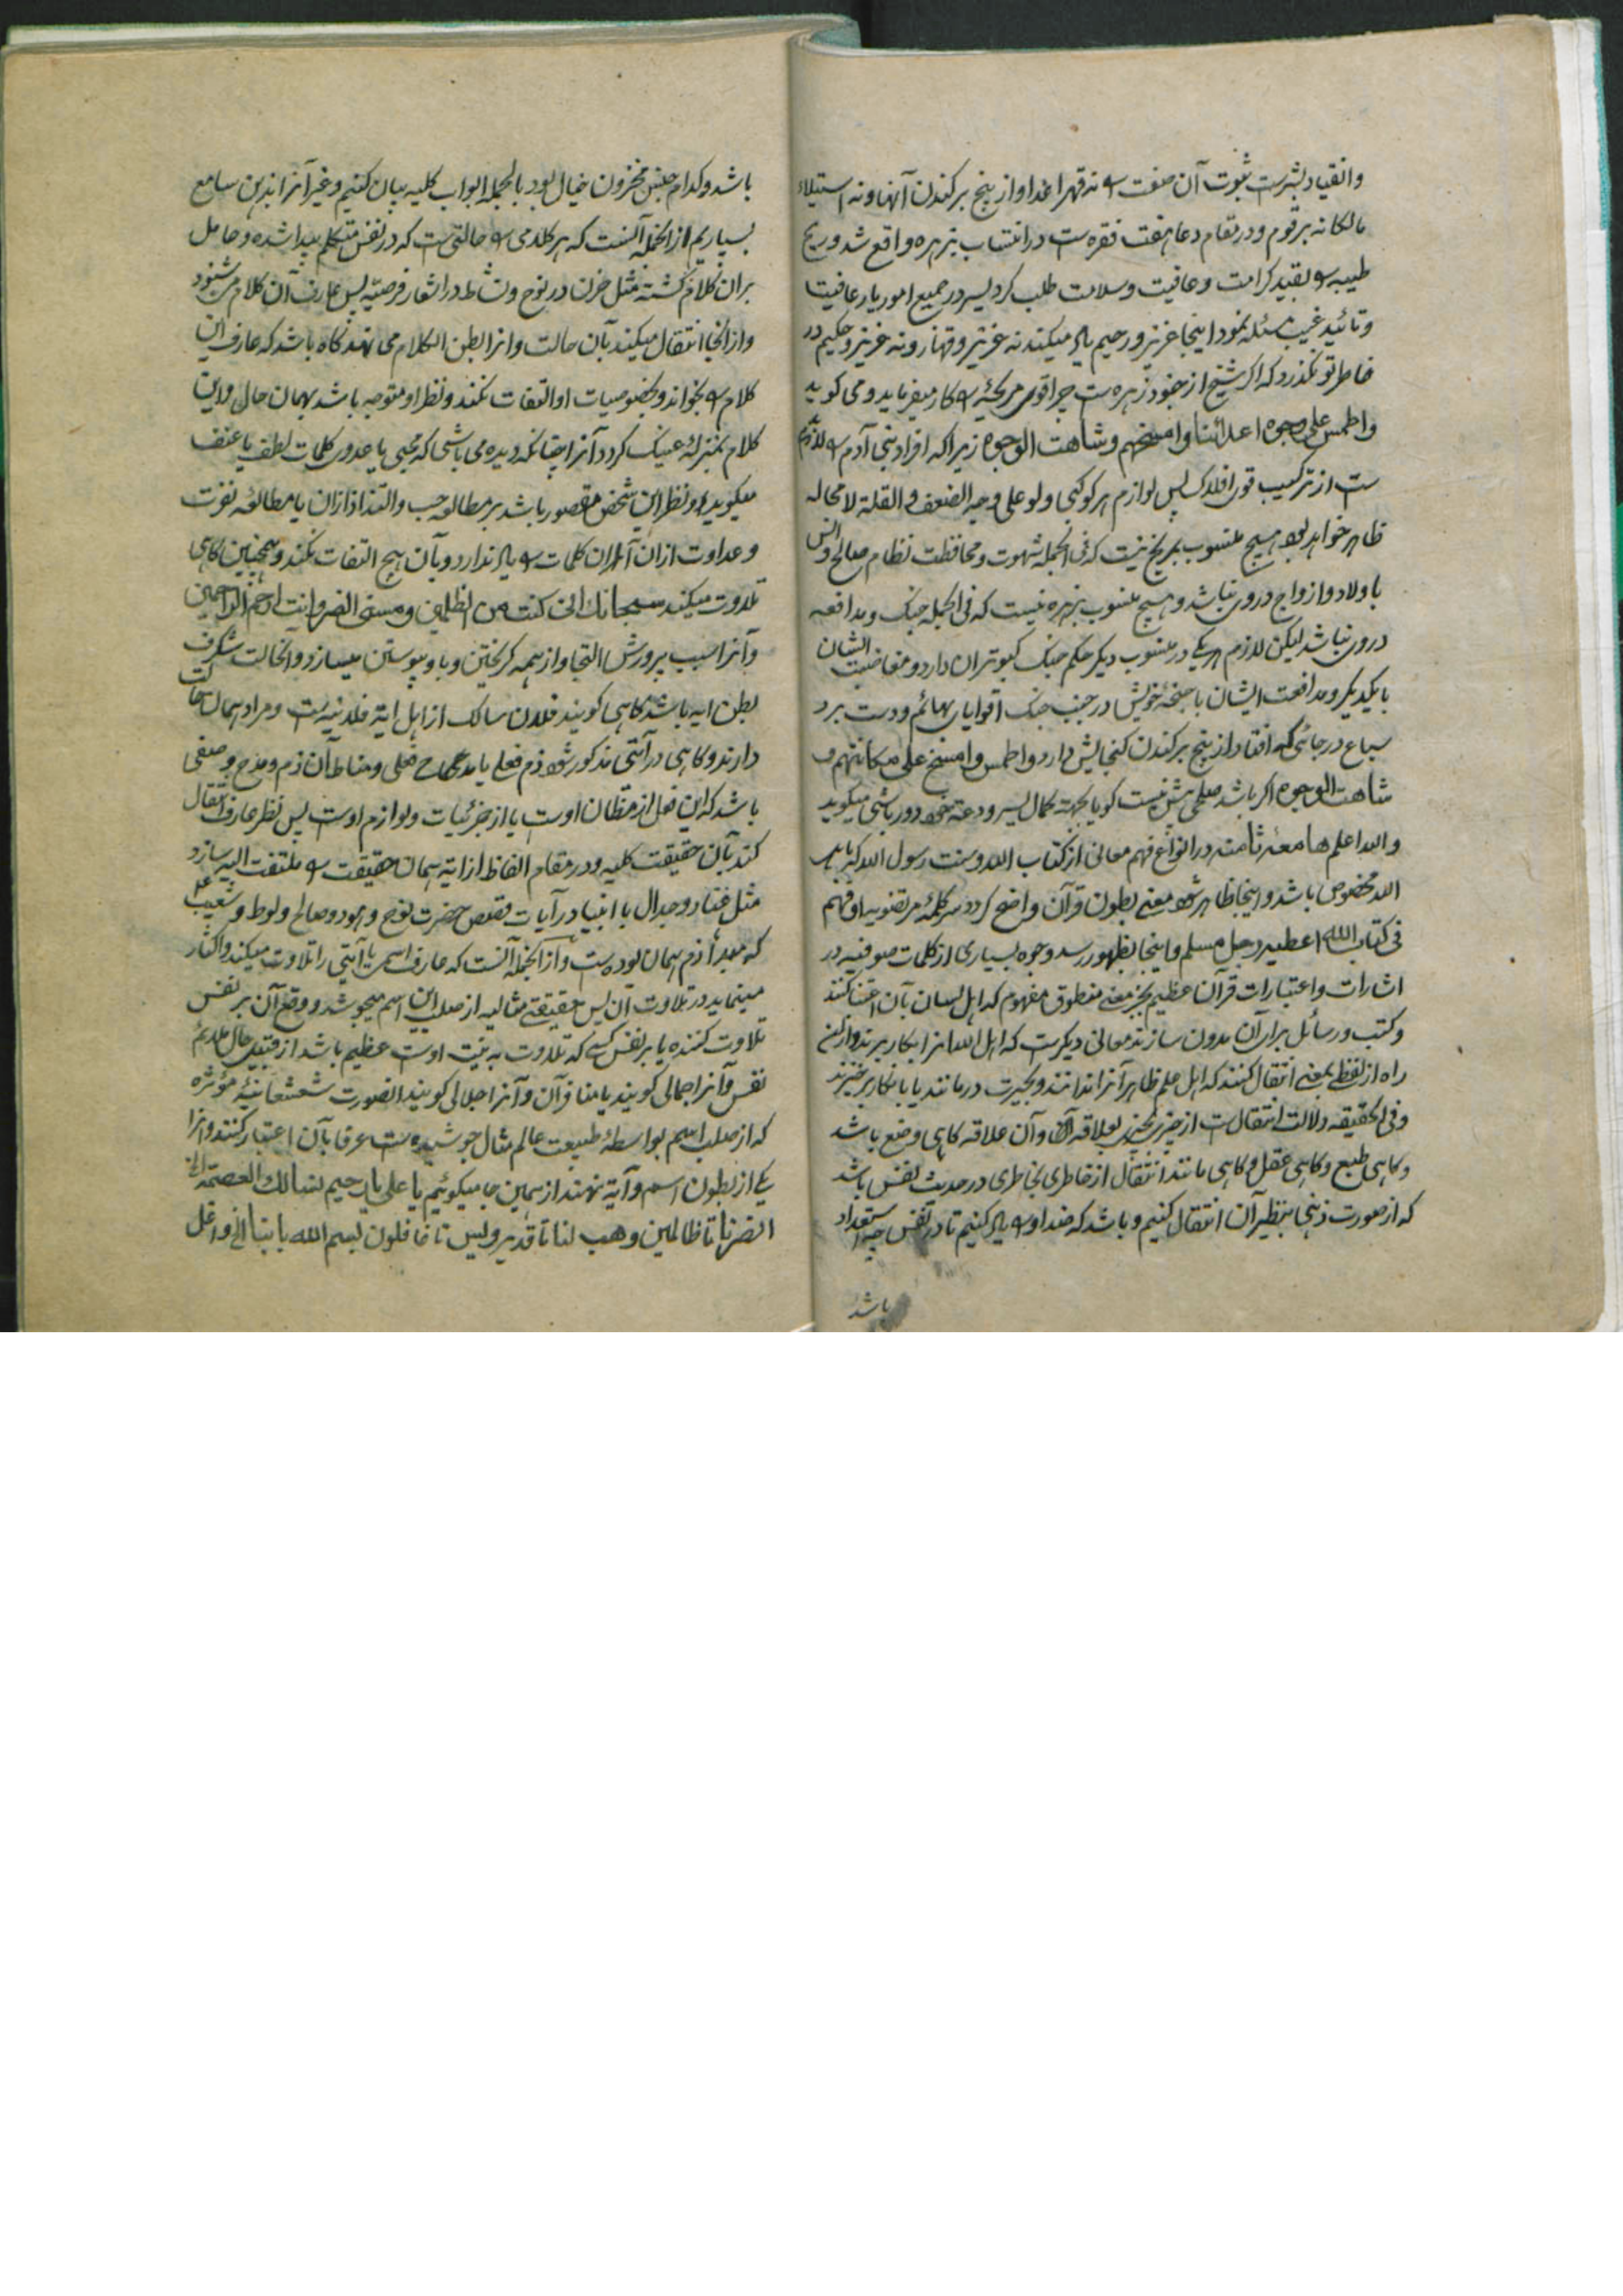 وانقیاد بشرست ثبوت آن صفت را نه قهر اعدا و از بیخ برکندن آنها و نه استیلاء
مالکانه بر قوم و در مقام دعا هفت فقره ست در انتساب بزهره واقع شد و ریح
طیبه را بقید کرامت وعافیت وسلامت طلب کرد یسر در جمیع امور یار عافیت
وتائید غیب مسئله نمود اینجا عزیز ورحیم یاد میکند نه عزیز وقهار ونه عزیز وحکیم در
خاطر تو نگذرد که اگر شیخ از جنود زهره ست چرا قوی مریخیه را کار میفرماید و می گوید
واطمس علی وجوه اعدائنا وامسخهم وشاهت الوجوه زیرا که افراد بنی آدم را لازم
ست از ترکیب قوی افلاک پس لوازم هر کوکبی ولو علی وجه الضعف والقلة لامحاله
ظاهر خواهد بود هیچ منسوب بمریخ نیست که فی الجمله شهوت ومحافظت نظام صالح وانس
با ولاد وازواج در وی نباشد وهیچ منسوب بزهره نیست که فی الجمله جنگ ومدافعه
در وی نباشد لیکن لازم هر یکی در منسوب دیگر حکم جنگ کبوتران دارد ومغاضبت ایشان
با یکدیگر ومدافعت ایشان با جفته خویش در جنب جنگ اقویای بهائم ودست برد
سباع در جائی که افتاد از بیخ برکندن گنجایش دارد واطمس وامسخ علی مکانتهم و
شاهت الوجوه اگر باشد صلحی بیش نیست گویا بجهت کمال یسر ودعة خود دور باشی میگوید
والله اعلم هامعه ثامنه در انواع فهم معانی از کتاب الله وسنت رسول الله که باهل
الله مخصوص باشد واینجا ظاهر شود معنی بطون قرآن واضح گردد سر کلمه مرتضویه او فهم
فی کتاب الله اعطیه رجل مسلم واینجا بظهور رسد وجوه بسیاری از کلمات صوفیه در
اشارات واعتبارات قرآن عظیم بجز معنی منطوق مفهوم که اهل لسان بآن اعتنا کنند
وکتب ورسائل برای آن مدون سازند معانی دیگرست که اهل الله آنرا بکار برند وازین
راه از لفظ بمعنی انتقال کنند که اهل علم ظاهر آنرا ندانند وبحیرت درمانند یا بانکار برخیزند
وفی الحقیقه دلالت انتقال ست از چیزی بچیزی بعلاقه آن وآن علاقه گاهی وضع باشد
وگاهی طبع وگاهی عقل وگاهی مانند انتقال از خاطری بخاطری در حدیث نفس باشد
که از صورت ذهنی بنظیر آن انتقال کنیم وباشد که ضد او را یاد کنیم تا در نفس چه استعداد
باشد
باشد وکدام جنس مخزون خیال بود بالجمله ابواب کلیه بیان کنیم وغیر آنرا بذهن سامع
بسپاریم از انجمله آنست که هر کلامی را حالتی ست که در نفس متکلم پیدا شده وحامل
بران کلام گشته مثل حزن در نوح ونشاط در اشعار فرحیه پس عارف آن کلام می شنود
واز آنجا انتقال میکند بآن حالت وانرا بطن الکلام می نهند گاه باشد که عارف این
کلام را بخواند وبخصوصیات او التفات نکند ونظر او متوجه باشد بهمان حال واین
کلام بمنزله عینک گردد آنرا چنانکه دیده می باشی که محبی یا عدوی کلمات لطف یا عنف
میگوید ونظر این شخص مقصور باشد بر مطالعه حب والتذاذ ازان یا مطالعه نفرت
وعداوت ازان آنگاه ان کلمات را یاد ندارد وبآن هیچ التفات نکند وهمچنین گاهی
تلاوت میکند سبحانك انی کنت من الظلمین ومسنی الضر وانت ارحم الراحمین
وآنرا سبب پرورش التجا واز همه گریختن وباو پیوستن میسازد وانحالت شگرف
بطن ایه باشد گاهی گویند فلان سالک از اهل ایة فلانیه ست ومراد همان حالت
دارند وگاهی در آیتی مذکور شود ذم فعلی یا مدح فعلی ومناط آن ذم ومدح وصفی
باشد که این فعل از مظان اوست یا از جزئیات ولوازم اوست پس نظر عارف انتقال
کند بآن حقیقت کلیه ودر مقام الفاظ از ایة همان حقیقت را ملتفت الیه سازد
مثل عناد وجدال با انبیا در آیات قصص حضرت نوح وهود وصالح ولوط وشعیب
که مبدأ ذم همان بوده ست وازانجمله آنست که عارف اسمی یا آیتی را تلاوت میکند واکثار
مینماید در تلاوت آن پس حقیقتی مثالیه از صلب این اسم میجوشد ووقع آن بر نفس
تلاوت کننده یا بر نفس کسی که تلاوت به نیت اوست عظیم باشد از قبیل حال ملایم
نفس وآنرا جمالی گویند یا منافر آن وآنرا جلالی گویند الصورت شعشعانیه مؤثره
که از صلب اسم بواسطه طبیعت عالم مثال جوشیده ست عرفا بآن اعتبار کنند وانرا
یکی از بطون اسم وآیة نهند از همین جا میگوئیم یا علی یا رحیم نسالك العصمة الی
انصرنا تا ظالمین وهب لنا تا قدیر ویس تا غافلون بسم الله بابنا الی واغل